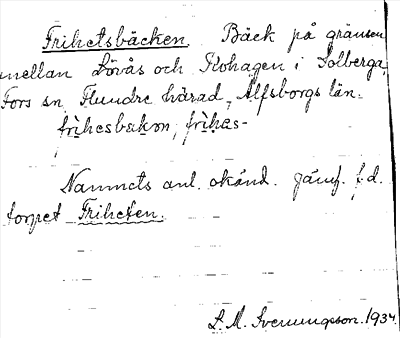 Frihetsbäcken. Bäck på gränsen
mellan Lövås och Kohagen i Solberga,
Fors sn, Flundre härad, Älfsborgs län.
frihesbakon, frihas-
Namnets anl. okänd. Jämf. f.d.
torpet Friheten.
L. M. Svenungsson. 1934